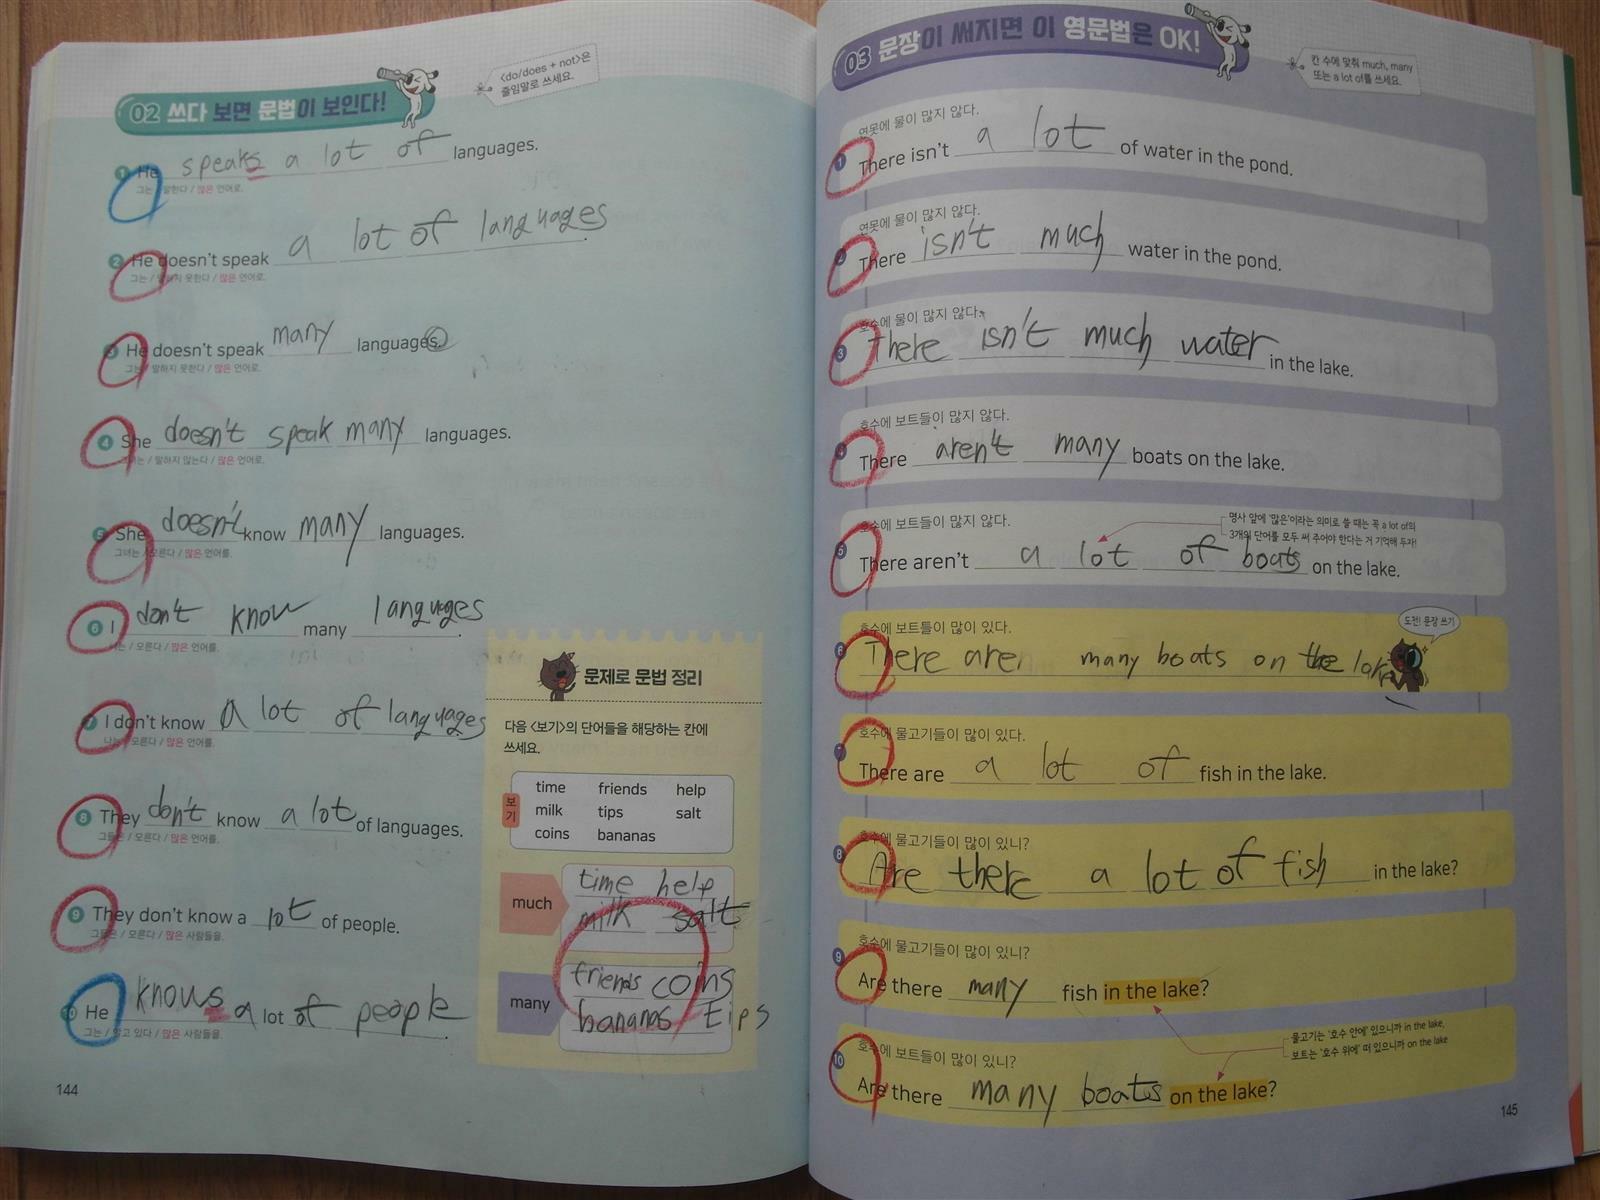 02 쓰다 보면 문법이 보인다!
<do/does + not>은
줄임말로 쓰세요.
1 He speaks a lot of languages.
그는 / 말한다 / 많은 언어로.
2 He doesn't speak a lot of languages.
그는 / 말하지 못한다 / 많은 언어로.
3 He doesn't speak many languages.
그는 / 말하지 못한다 / 많은 언어로.
4 She doesn't speak many languages.
그녀는 / 말하지 않는다 / 많은 언어로.
5 She doesn't know many languages.
그녀는 / 모른다 / 많은 언어를.
6 I don't know many languages.
나는 / 모른다 / 많은 언어를.
7 I don't know a lot of languages
나는 / 모른다 / 많은 언어를.
8 They don't know a lot of languages.
그들은 / 모른다 / 많은 언어를.
9 They don't know a lot of people.
그들은 / 모른다 / 많은 사람들을.
10 He knows a lot of people.
그는 / 알고 있다 / 많은 사람들을.
문제로 문법 정리
다음 <보기>의 단어들을 해당하는 칸에
쓰세요.
보기
time friends help
milk tips salt
coins bananas
much
time help
milk salt
many
friends coins
bananas tips
144
03 문장이 써지면 이 영문법은 OK!
칸 수에 맞춰 much, many
또는 a lot of를 쓰세요.
연못에 물이 많지 않다.
1 There isn't a lot of water in the pond.
연못에 물이 많지 않다.
2 There isn't much water in the pond.
호수에 물이 많지 않다.
3 There isn't much water in the lake.
호수에 보트들이 많지 않다.
4 There aren't many boats on the lake.
호수에 보트들이 많지 않다.
명사 앞에 '많은'이라는 의미로 쓸 때는 꼭 a lot of의
3개의 단어를 모두 써 주어야 한다는 거 기억해 두자!
5 There aren't a lot of boats on the lake.
호수에 보트들이 많이 있다.
도전! 문장 쓰기
6 There are many boats on the lake
호수에 물고기들이 많이 있다.
7 There are a lot of fish in the lake.
호수에 물고기들이 많이 있니?
8 Are there a lot of fish in the lake?
호수에 물고기들이 많이 있니?
9 Are there many fish in the lake?
물고기는 '호수 안에' 있으니까 in the lake,
보트는 '호수 위에' 떠 있으니까 on the lake
호수에 보트들이 많이 있니?
10 Are there many boats on the lake?
145